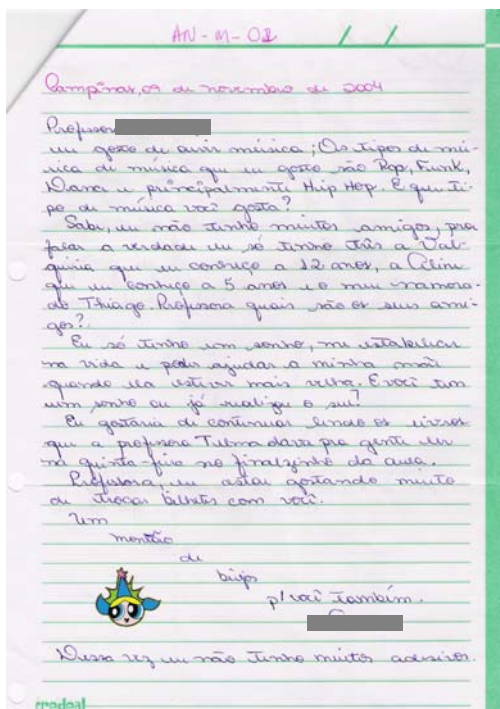 AN - M - 01
Campinas, 09 de novembro de 2004
Professora
eu gosto de ouvir música; Os tipos de mú-
sica de música que eu gosto são Pop, Funk,
Dance e principalmente Hip Hop. E que ti-
po de música você gosta?
Sabe, eu não tenho muitos amigos, pra
falar a verdade eu só tenho três a Val-
quiria que eu conheço a 12 anos, a Celine
que eu conheço a 5 anos e o meu namora-
do Thiago. Professora quais são os seus ami-
gos?
Eu só tenho um sonho, me estabilicar
na vida e poder ajudar a minha mãe
quando ela estiver mais velha. E você tem
um sonho ou já realizou o seu?
Eu gostaria de continuar lendo os livros
que a professora Telma dava pra gente ler
na quinta-feira no finalzinho da aula.
Professora, eu estou gostando muito
de trocar bilhetes com você.
Um
montão
de
beijos
p/ você também.
Dessa vez eu não tenho muitos adesivos.